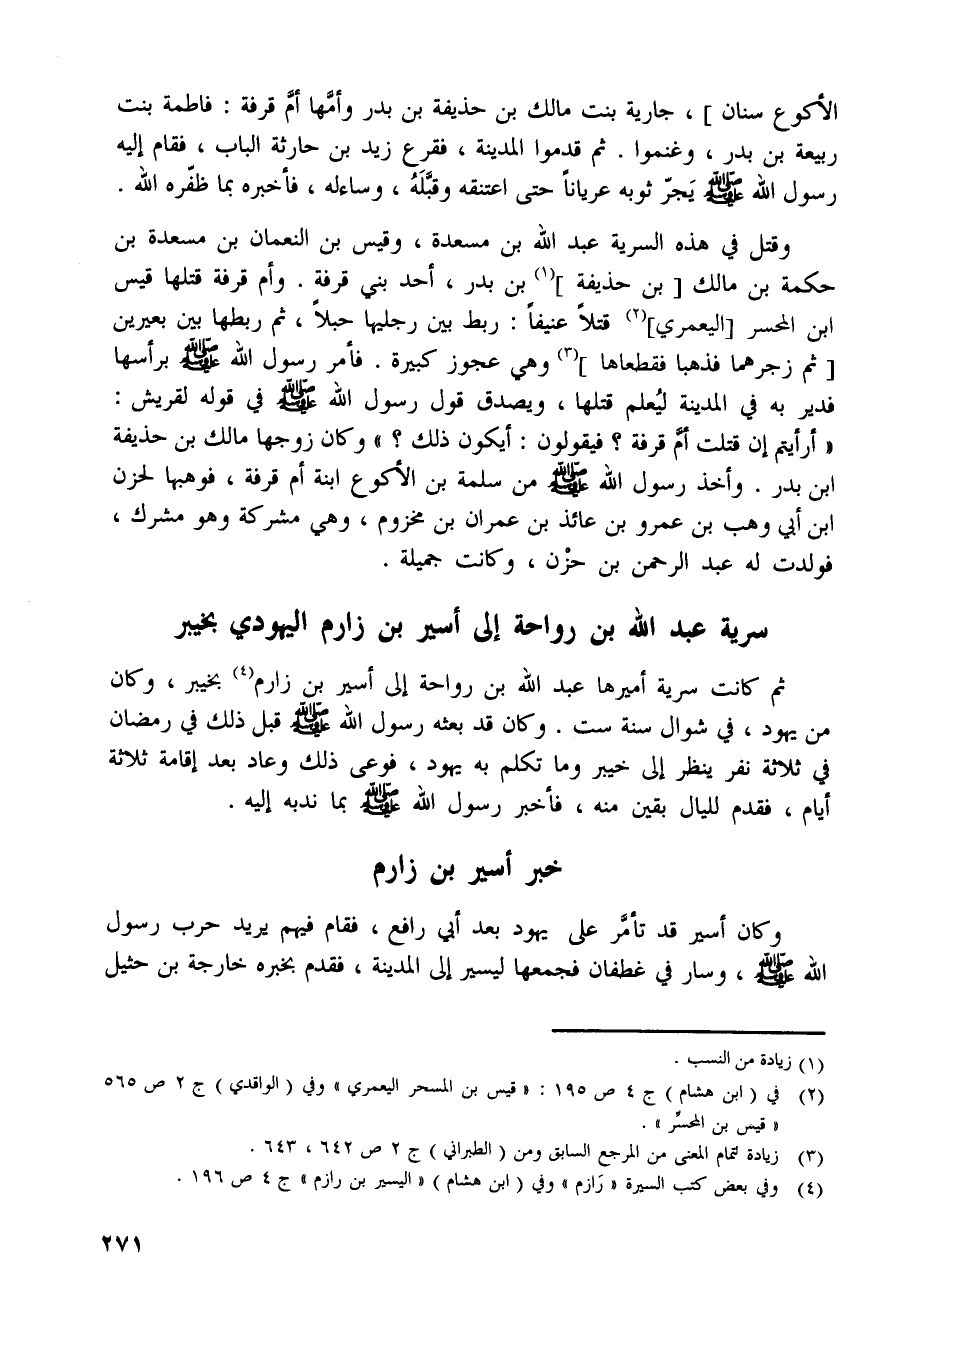 الأكوع سنان ] ، جارية بنت مالك بن حذيفة بن بدر وأمَّها أمَّ قرفة : فاطمة بنت
ربيعة بن بدر ، وغنموا . ثم قدموا المدينة ، فقرع زيد بن حارثة الباب ، فقام إليه
رسول الله ﷺ يَجرّ ثوبه عرياناً حتى اعتنقه وقبَّلَهُ ، وساءله ، فأخبره بما ظفّره الله .
وقتل في هذه السرية عبد الله بن مسعدة ، وقيس بن النعمان بن مسعدة بن
حكمة بن مالك [ بن حذيفة ](١) بن بدر ، أحد بني قرفة . وأم قرفة قتلها قيس
ابن المحسر [اليعمري](٢) قتلاً عنيفاً : ربط بين رجليها حبلاً ، ثم ربطها بين بعيرين
[ ثم زجرهما فذهبا فقطعاها ](٣) وهي عجوز كبيرة . فأمر رسول الله ﷺ برأسها
فدير به في المدينة ليُعلم قتلها ، ويصدق قول رسول الله ﷺ في قوله لقريش :
« أرأيتم إن قتلت أمَّ قرفة ؟ فيقولون : أيكون ذلك ؟ » وكان زوجها مالك بن حذيفة
ابن بدر . وأخذ رسول الله ﷺ من سلمة بن الأكوع ابنة أم قرفة ، فوهبها لحزن
ابن أبي وهب بن عمرو بن عائذ بن عمران بن مخزوم ، وهي مشركة وهو مشرك ،
فولدت له عبد الرحمن بن حزْن ، وكانت جميلة .
سرية عبد الله بن رواحة إلى أسير بن زارم اليهودي بخيبر
ثم كانت سرية أميرها عبد الله بن رواحة إلى أسير بن زارم(٤) بخيبر ، وكان
من يهود ، في شوال سنة ست . وكان قد بعثه رسول الله ﷺ قبل ذلك في رمضان
في ثلاثة نفر ينظر إلى خيبر وما تكلم به يهود ، فوعى ذلك وعاد بعد إقامة ثلاثة
أيام ، فقدم لليال بقين منه ، فأخبر رسول الله ﷺ بما ندبه إليه .
خبر أسير بن زارم
وكان أسير قد تأمَّر على يهود بعد أبي رافع ، فقام فيهم يريد حرب رسول
الله ﷺ ، وسار في غطفان فجمعها ليسير إلى المدينة ، فقدم بخبره خارجة بن حثيل
(١) زيادة من النسب .
(٢) في ( ابن هشام ) ج ٤ ص ١٩٥ : « قيس بن المسحر اليعمري » وفي ( الواقدي ) ج ٢ ص ٥٦٥
« قيس بن المحسِّر » .
(٣) زيادة لتمام المعنى من المرجع السابق ومن ( الطبراني ) ج ٢ ص ٦٤٢ ، ٦٤٣ .
(٤) وفي بعض كتب السيرة « رَازم » وفي ( ابن هشام ) « اليسير بن رازم » ج ٤ ص ١٩٦ .
٢٧١